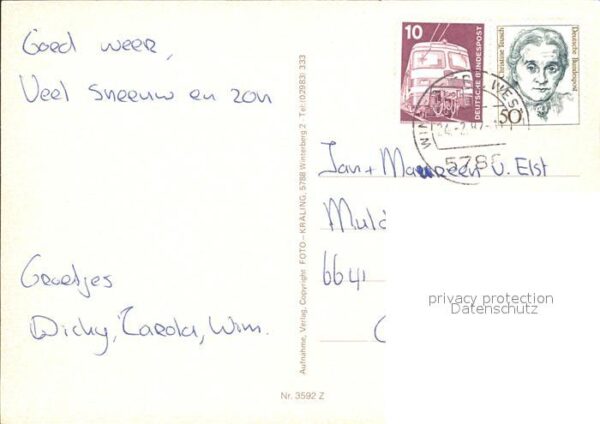 Goed weer,
Veel sneeuw en zon
Groetjes
Dicky, Carola, Wim.
Aufnahme, Verlag, Copyright FOTO – KRALING, 5788 Winterberg 2 Tel: (02983) 333
Nr. 3592 Z
10
DEUTSCHE BUNDESPOST
Christine Teusch
Deutsche Bundespost
50
5788
Jan + Maureen v. Elst
6641
privacy protection
Datenschutz